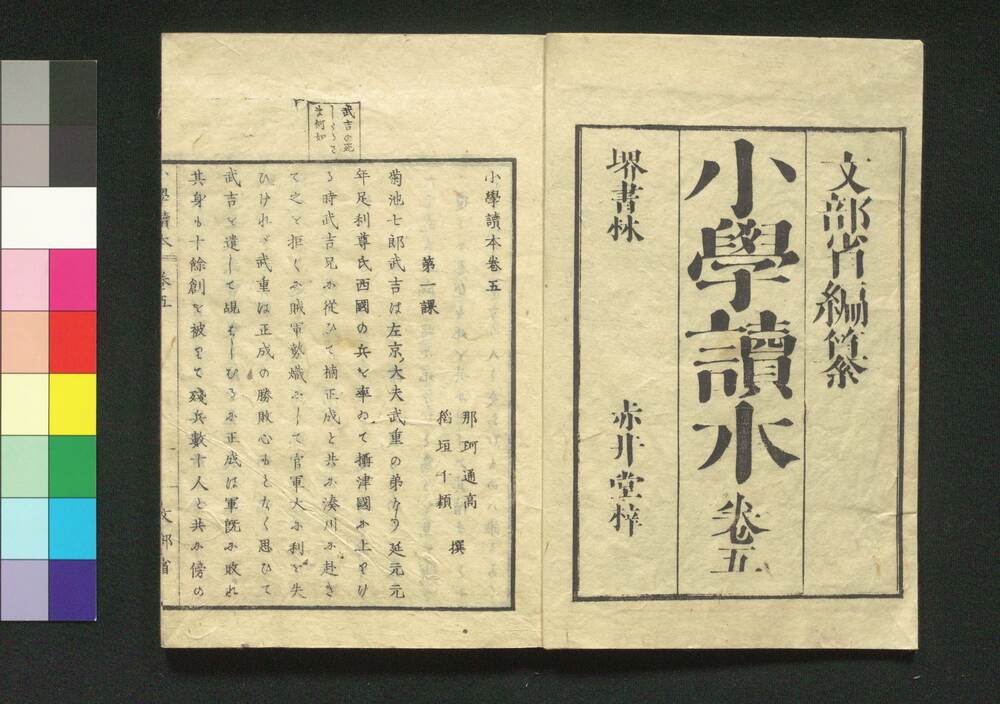 文部省編纂
小學讀本 卷五
堺書林 赤井堂梓
武吉の死
小學讀本卷五
第一課
那珂通高
稻垣千頴 撰
菊池七郎武吉は左京大夫武重の弟なり延元元
年足利尊氏西國の兵を率ゐて攝津國に上りけ
る時武吉兄に從ひて楠正成と共に湊川に赴き
て之を拒くに賊軍勢熾にして官軍大に利を失
ひけれバ武重は正成の勝敗心もとなく思ひて
武吉を遣して覘はしむるに正成は軍既に敗れ
其身も十餘創を被りて殘兵數十人と共に傍の
小學讀本 卷五 一 文部省